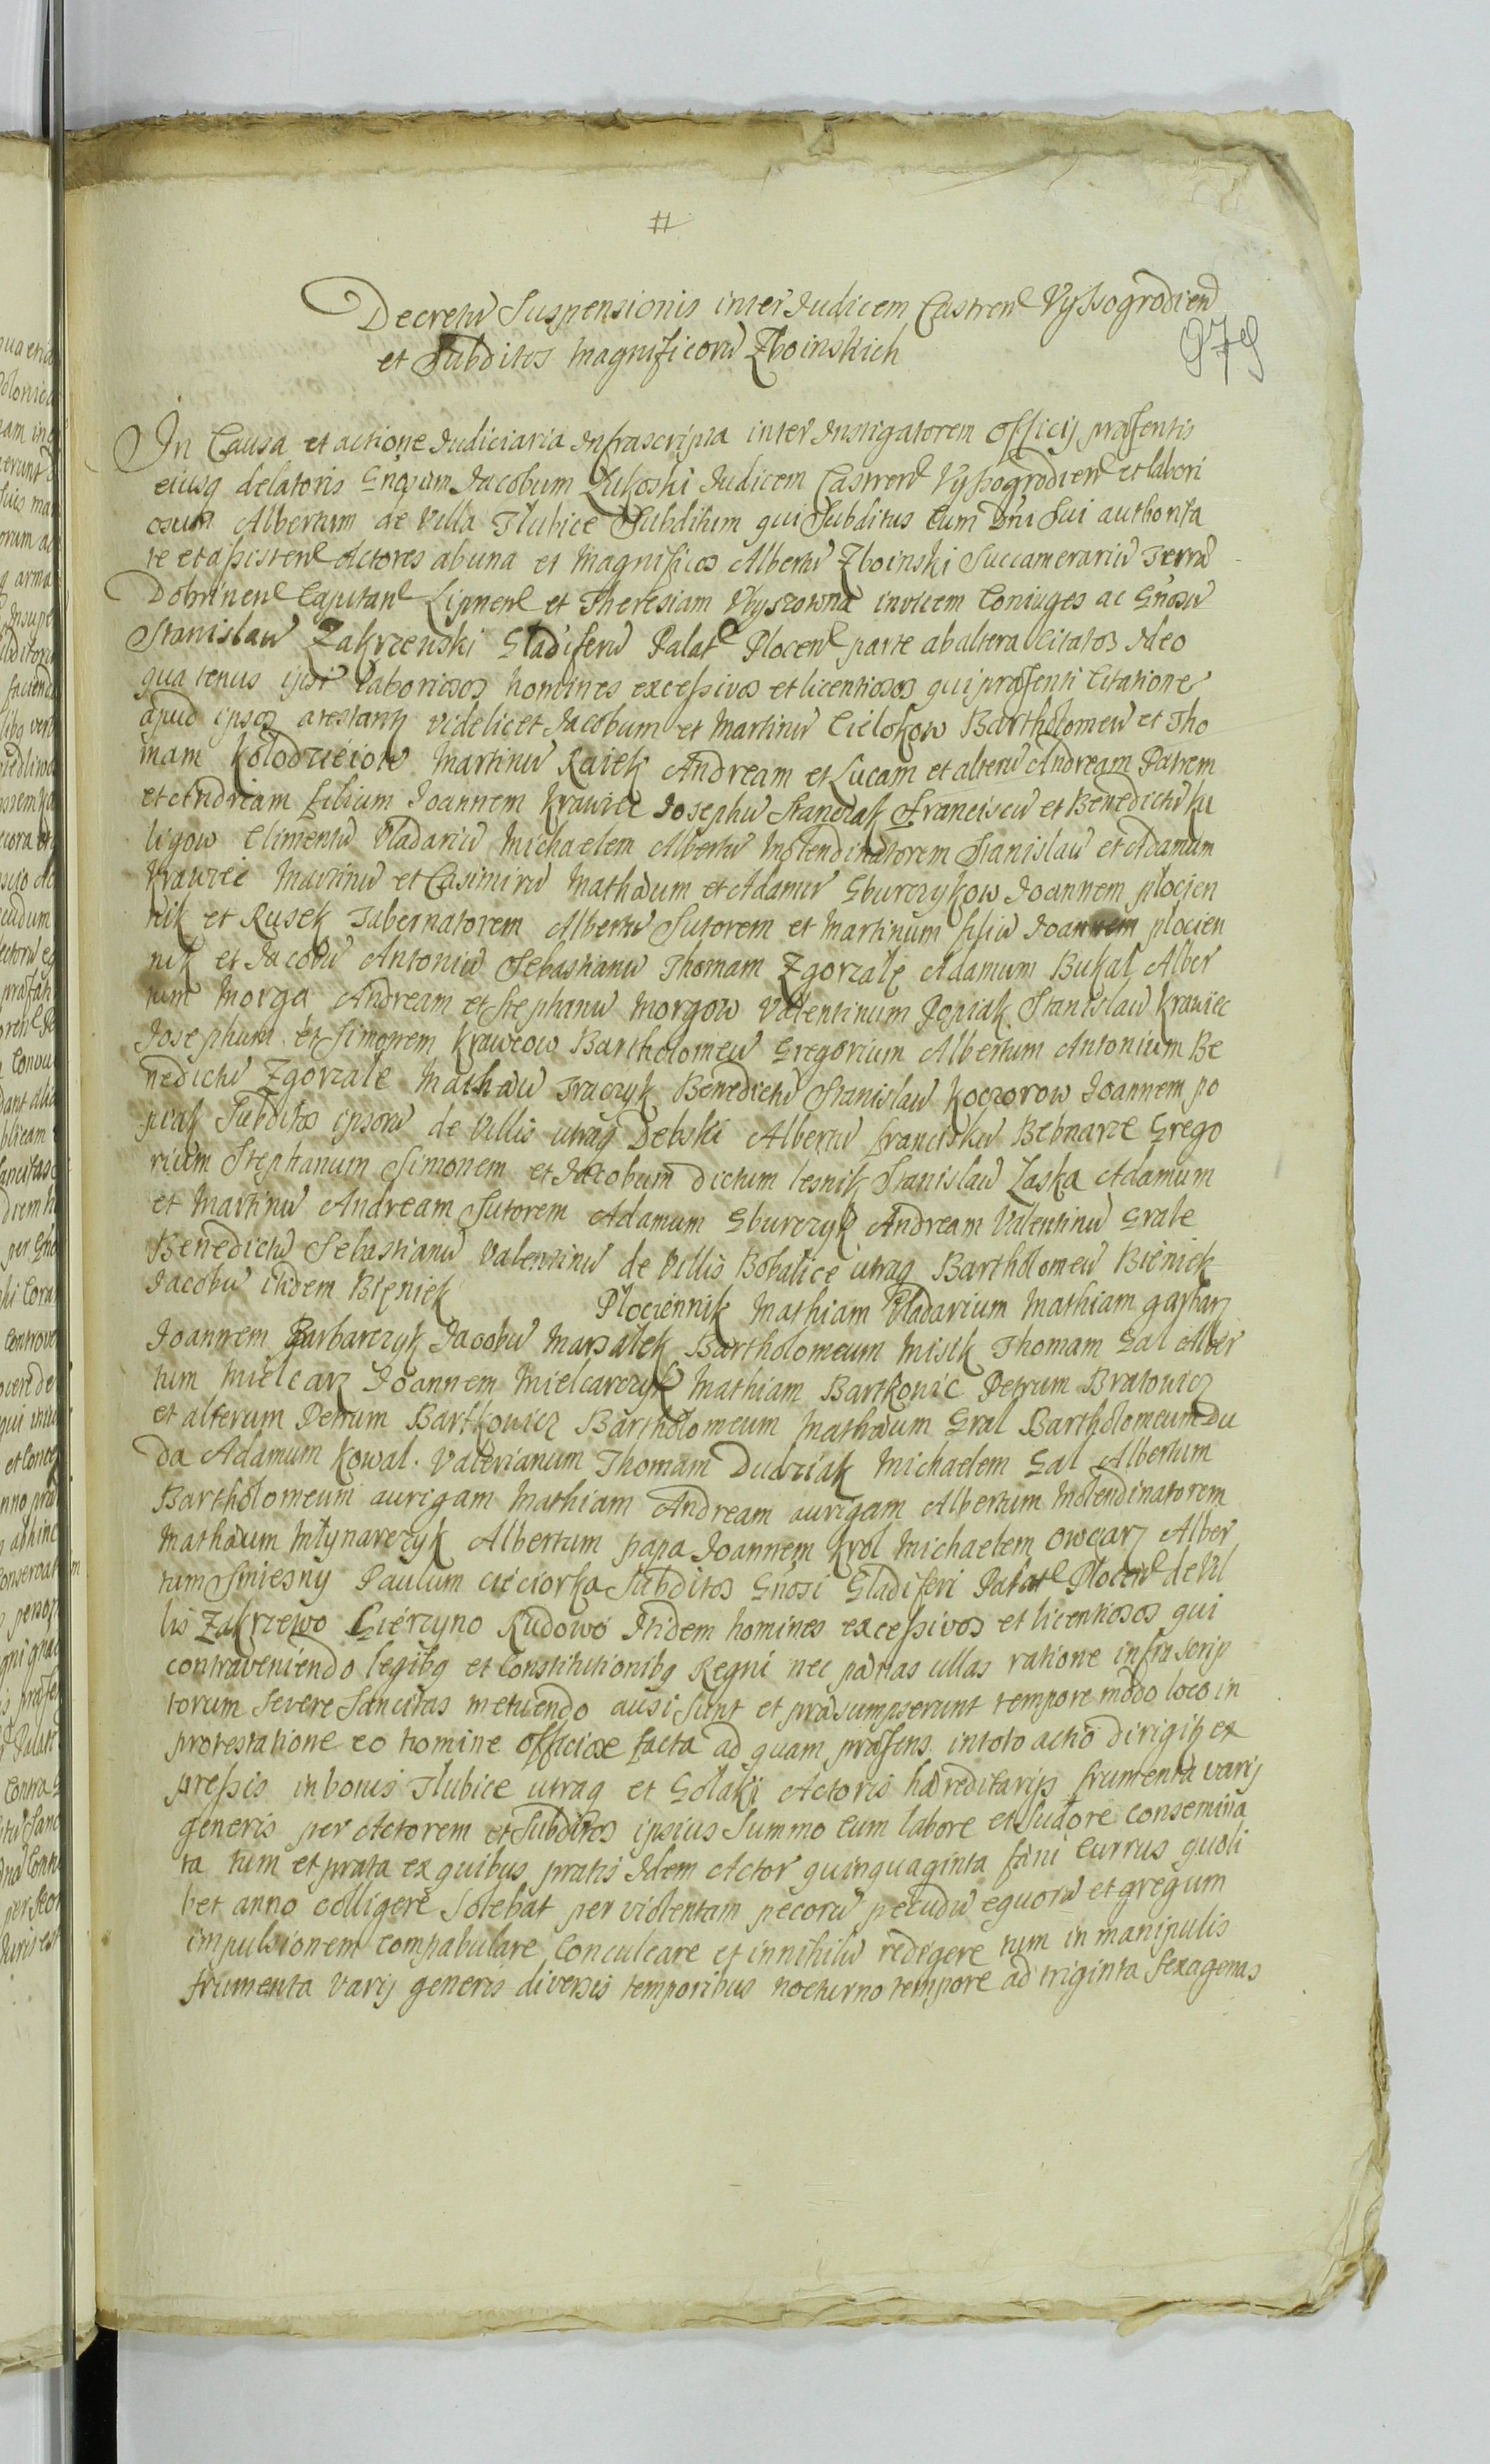 #
Decretũ Suspensionis inter Judicem Castren Vyssogrodien
et Subditos Magnificorũ Zboinskich
979
In Causa et actione Judiciaria Infrascripta inter Instigatorem Officij præsentis
eiusq delatoris Gnosum Jacobum Zukoski Judicem Castren Vyssogrodien et labori
osum Albertum de Villa Ilubice Subditum qui Subditus cum Dni Sui authorita
te et assisten Actores ab una et Magnificos Albertũ Zboinski Succamerariũ Terræ
Dobrinen Capitan Lipnen et Theresiam invicem Coniuges ac Gnosũ
Stanislaũ Zakrzenski Gladiferũ Palat Plocen parte ab altera Citatos Ideo
qua tenus ipsi laboriosos homines excessivos et licentiosos qui præsenti Citatione
apud ipsos arestantq videlicet Jacobum et Martinũ Cielokow Bartholomeũ et Tho
mam Kolodzieiow Martinũ Raiek Andream et Lucam et alterũ Andream Patrem
et Andream filium Joannem Krawiec Josephũ Stanczak Franciscũ et Benedictũ Ku
ligow Clementũ Vladariũ Michaelem Albertũ Molendinatorem Stanislaũ et Adamum
Krawiec Martinũ et Casimirũ Mathæum et Adamũ Gburczykow Joannem plocien
nik et Rusek Tabernatorem Albertũ Sutorem et Martinum filiũ Joannem plocien
nik et Jacobũ Antoniũ Sebastianũ Thomam Zgorzale Adamum Bukal Alber
tum Morga Andream et Stephanũ Morgow Valentinum Popiak Stanislaũ Krawiec
Josephum et Simonem Krawcow Bartholomeũ Gregorium Albertum Antonium Be
nedictũ Zgorzale Mathæũ Traczyk Benedictũ Stanislaũ Koczorow Joannem po
piak Subditos ipsorũ de Villis utraq Debski Albertũ Franciskũ Bebnarze Grego
rium Stephanum Simonem et Jacobum dictum lesnik Stanislaũ Laska Adamum
et Martinũ Andream Sutorem Adamum Gburczyk Andream Valentinũ Grale
Benedictũ Sebastianũ Valentinũ de Villis Bobalice utraq Bartholomeũ Bieniek
Jacobũ itidem Bieniek Plociennik Mathiam Vladarium Mathiam gaspar
Joannem Barbarczyk Jacobũ Marsalek Bartholomeum Misik Thomam Gal Alber
tum Mielcarz Joannem Mielcarczyk Mathiam Bartkowic Petrum Bratowicz
et alterum Petrum Bartkowicz Bartholomeum Mathæum Gral Bartholomeum Du
da Adamum Kowal Valerianum Thomam Dudziak Michaelem Gal Albertum
Bartholomeum aurigam Mathiam Andream aurigam Albertum Molendinatorem
Mathæum Młynarczyk Albertum papa Joannem Krol Michaelem Owczarz Alber
tum Smiesny Paulum cieciorka Subditos Gnosi Gladiferi Palat Plocen de Vil
lis Zakrzewo Gierzyno Rudowo Itidem homines excessivos et licentiosos qui
contraveniendo legibq et Constitutionibq Regni nec pænas ullas ratione infrascrip
torum Severe Sancitas metuendo ausi sunt et præsumpserunt tempore modo loco in
protestatione eo nomine officiose facta ad quam præsens in toto actio dirigitq ex
pressis in bonis Ilubice utraq et Golaki Actoris hæreditarijs frumenta varij
generis per Actorem et Subditos ipsius Summo cum labore et Sudore consemina
ta tum et prata ex quibus pratis Idem Actor quinquaginta fæni Currus quoli
bet anno colligere Solebat per violentam pecorũ pecudũ equorũ et gregum
impulsionem compabulare Conculcare et in nihilũ redigere tum in manipulis
frumenta varij generis diversis temporibus nocturno tempore ad triginta Sexagenas